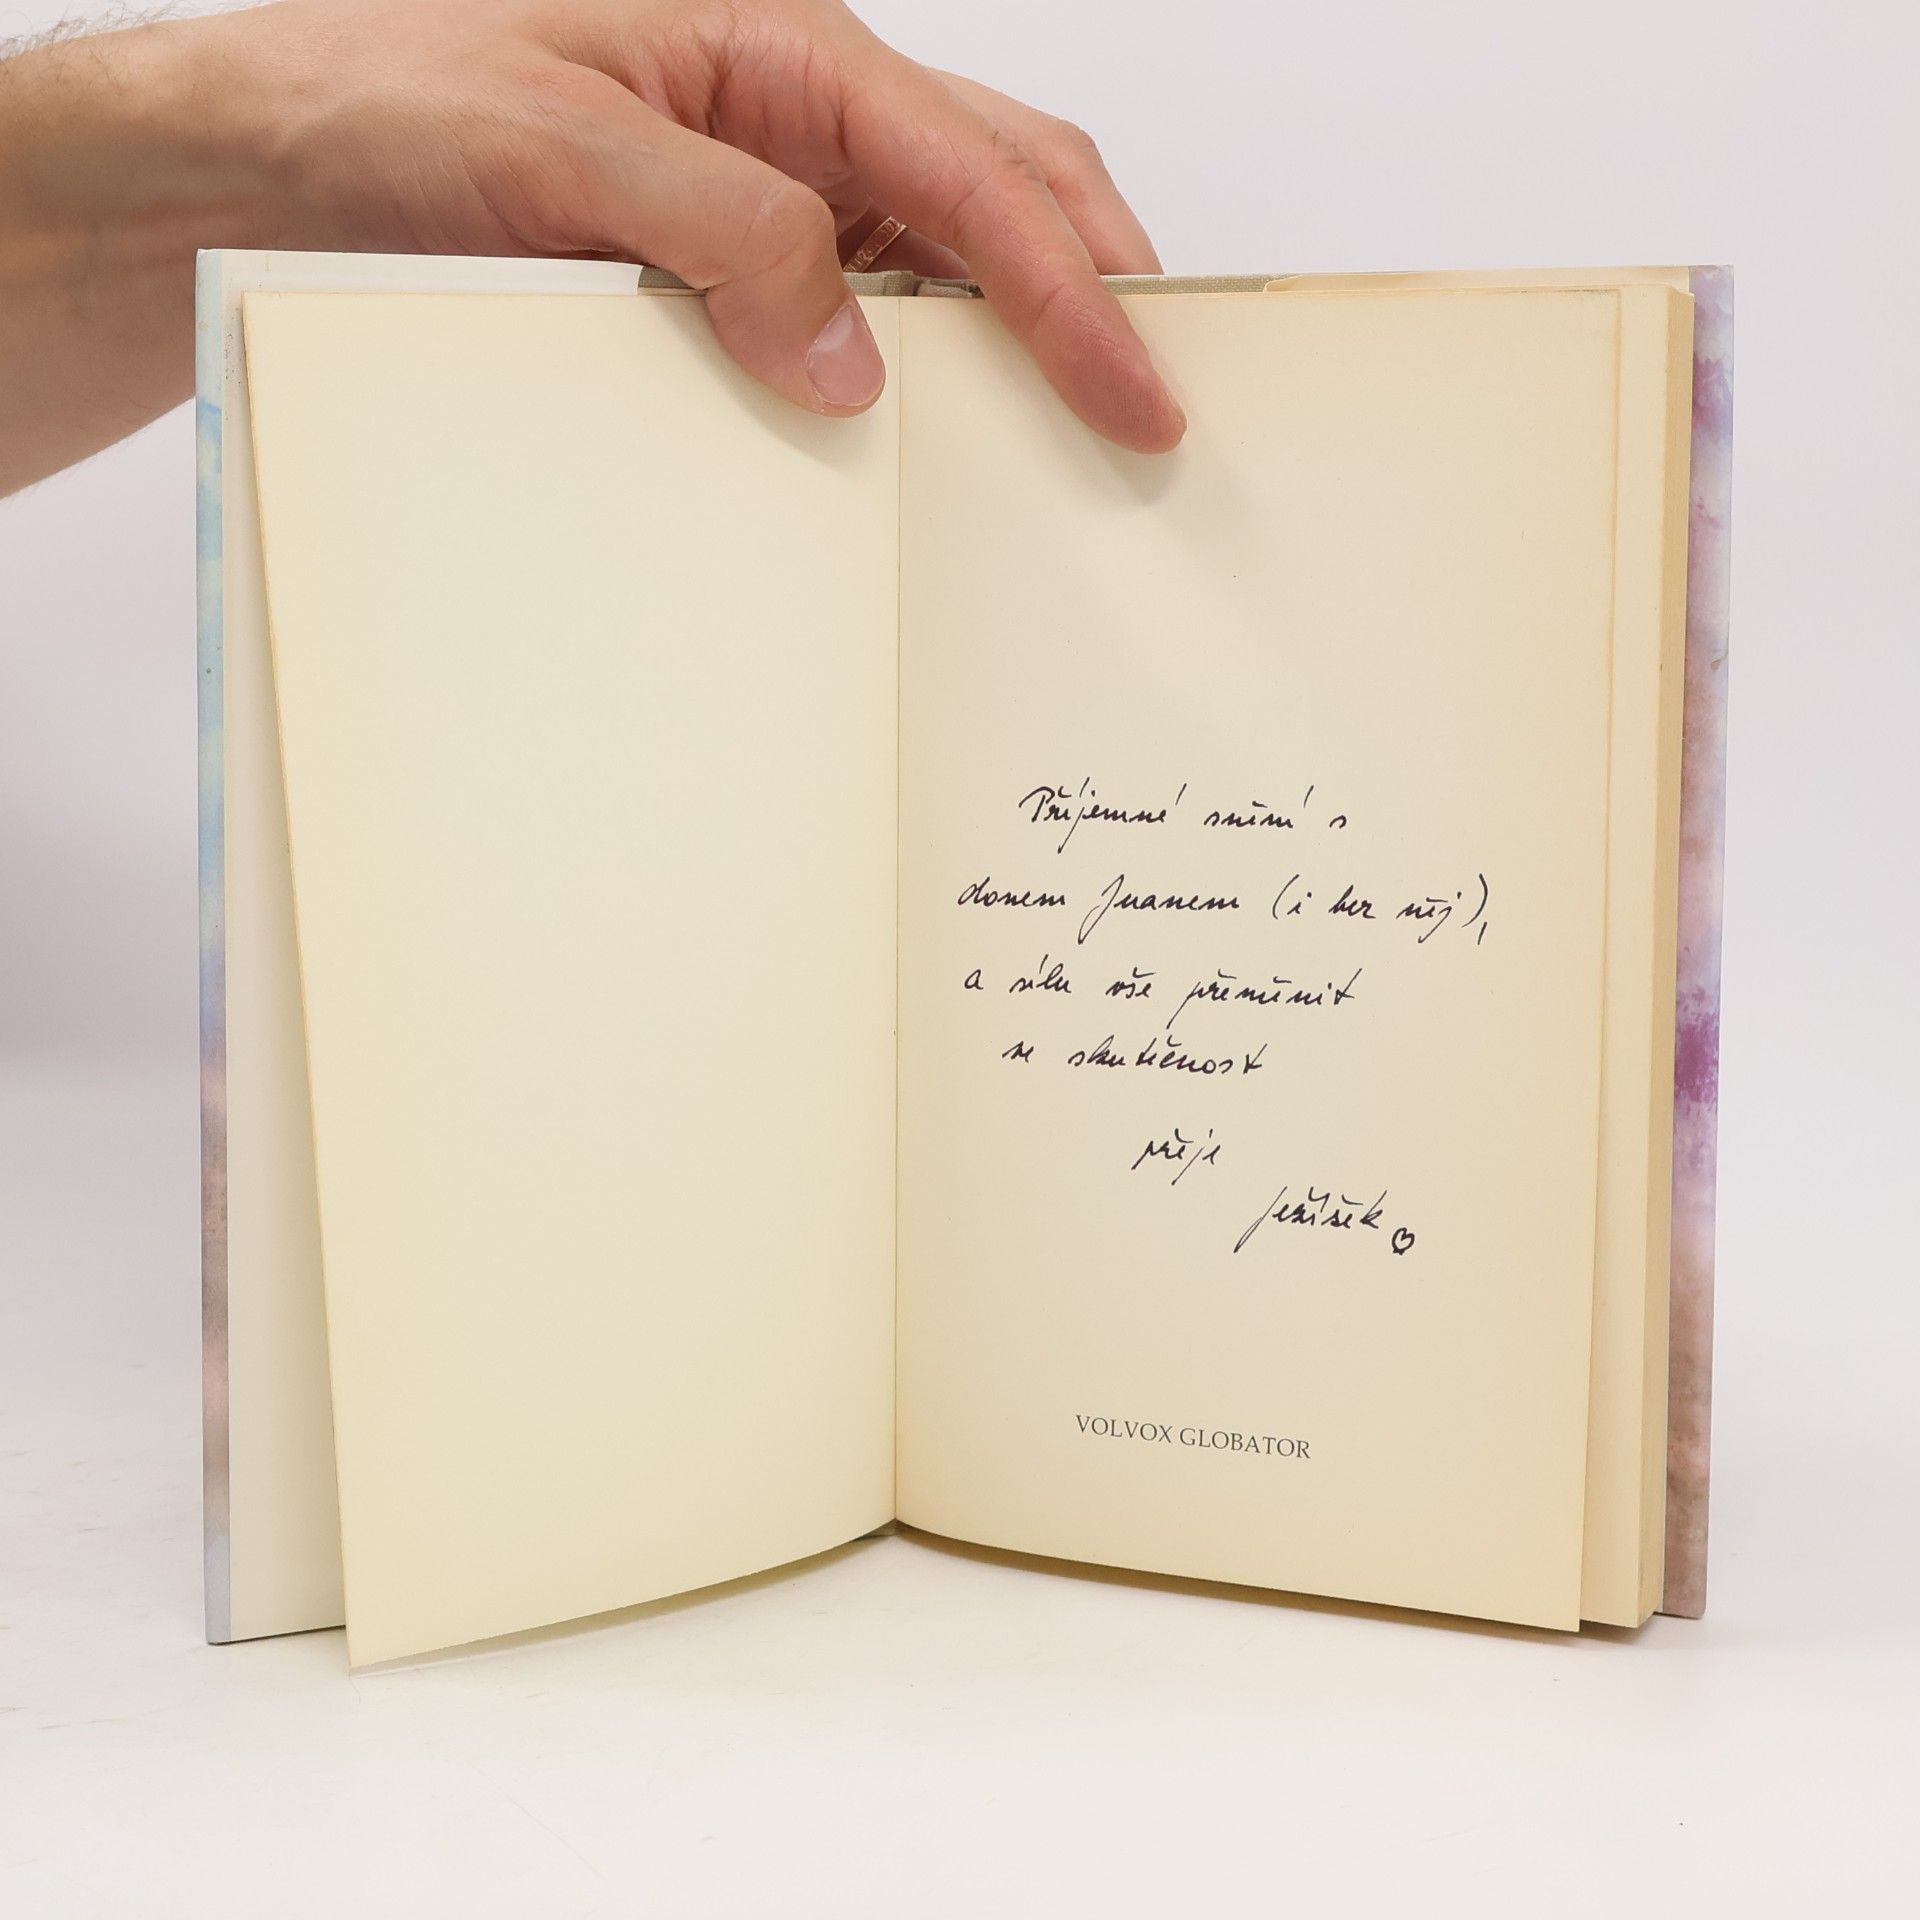 Příjemné snění s
donem Juanem (i bez něj),
a sílu vše přeměnit
ve skutečnost
přeje
Ježíšek
VOLVOX GLOBATOR